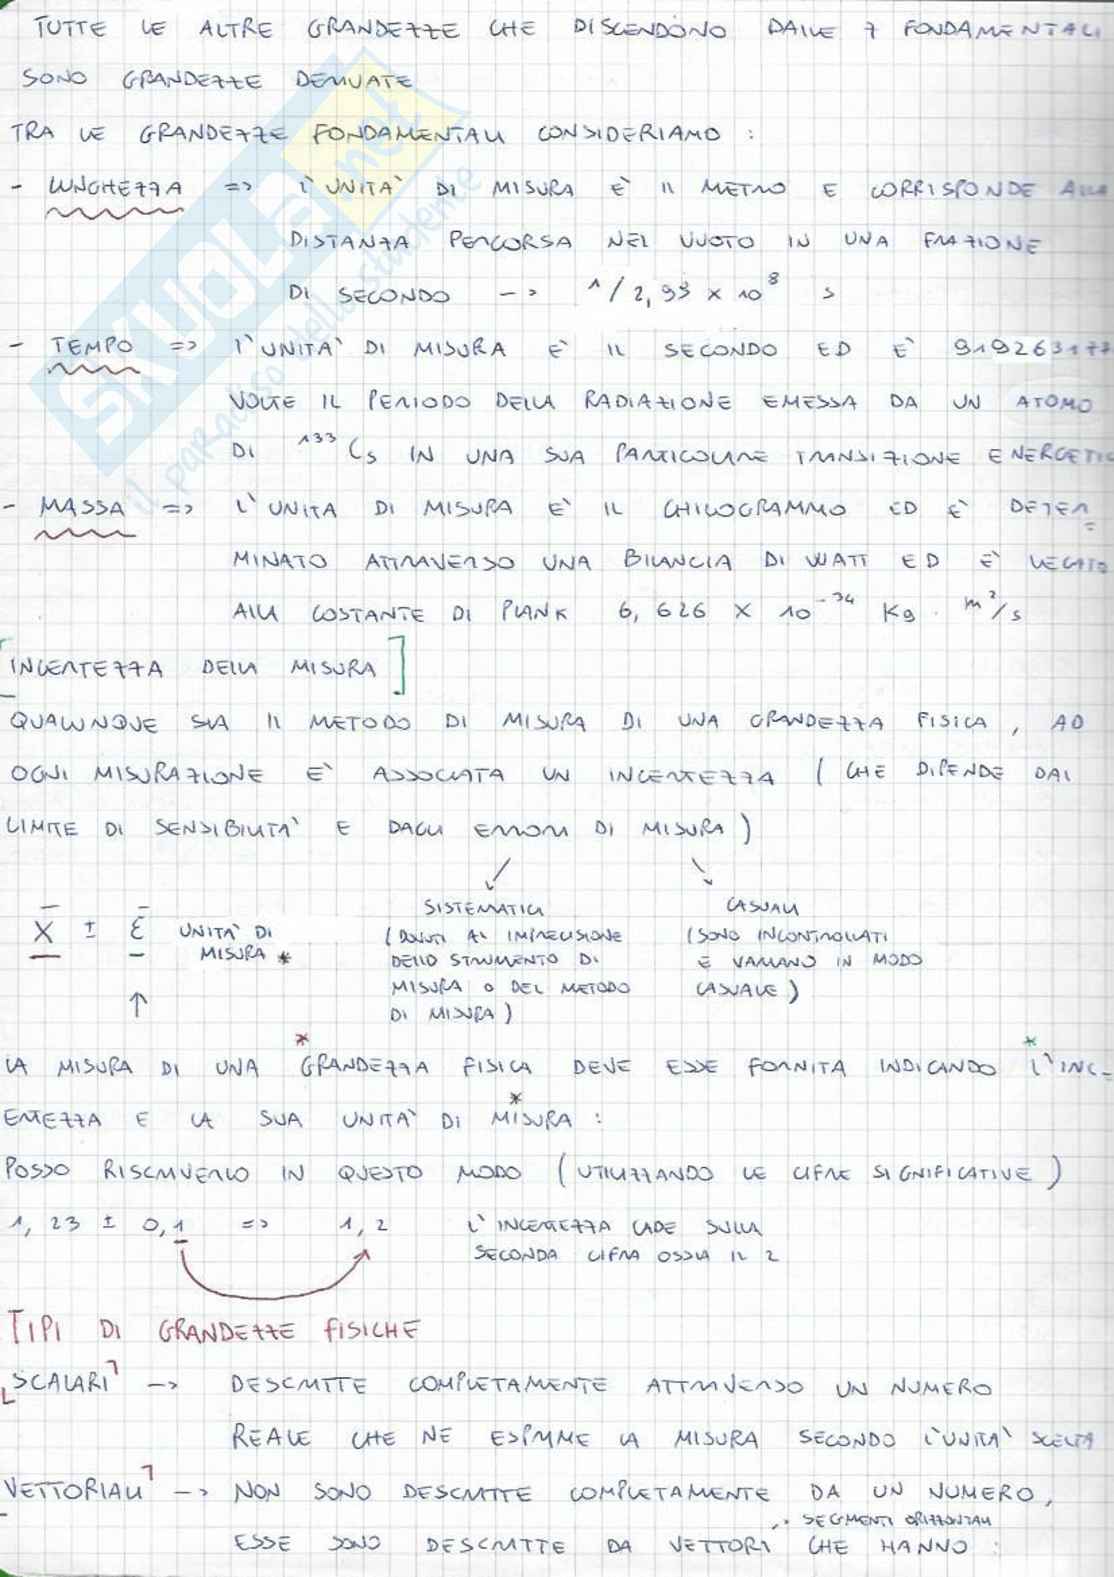 TUTTE LE ALTRE GRANDEZZE CHE DISCENDONO DALLE 7 FONDAMENTALI
SONO GRANDEZZE DERIVATE
TRA LE GRANDEZZE FONDAMENTALI CONSIDERIAMO :
- LUNGHEZZA => L'UNITÀ DI MISURA È IL METRO E CORRISPONDE ALLA
DISTANZA PERCORSA NEL VUOTO IN UNA FRAZIONE
DI SECONDO -> 1/2,99 × 10⁸ s
- TEMPO => L'UNITÀ DI MISURA È IL SECONDO ED È 919263177
VOLTE IL PERIODO DELLA RADIAZIONE EMESSA DA UN ATOMO
DI ¹³³Cs IN UNA SUA PARTICOLARE TRANSIZIONE ENERGETIC
- MASSA => L'UNITA DI MISURA È IL CHILOGRAMMO ED È DETER=
MINATO ATTRAVERSO UNA BILANCIA DI WATT ED È LEGATO
ALLA COSTANTE DI PLANK 6,626 × 10⁻³⁴ Kg · m²/s
[INCERTEZZA DELLA MISURA]
QUALUNQUE SIA IL METODO DI MISURA DI UNA GRANDEZZA FISICA, AD
OGNI MISURAZIONE È ASSOCIATA UN INCERTEZZA (CHE DIPENDE DAL
LIMITE DI SENSIBILITÀ E DAGLI ERRORI DI MISURA)
SISTEMATICI
(DOVUTI AL IMPRECISIONE
DELLO STRUMENTO DI
MISURA O DEL METODO
DI MISURA)
CASUALI
(SONO INCONTROLLATI
E VARIANO IN MODO
CASUALE)
X ± Ɛ UNITÀ DI
MISURA *
↑
LA MISURA DI UNA *GRANDEZZA FISICA DEVE ESSE FORNITA INDICANDO *L'INC-
ERTEZZA E LA SUA UNITÀ DI *MISURA :
POSSO RISCRIVERLO IN QUESTO MODO (UTILIZZANDO LE CIFRE SIGNIFICATIVE)
1,23 ± 0,1 => 1,2 L'INCERTEZZA CADE SULLA
SECONDA CIFRA OSSIA IL 2
TIPI DI GRANDEZZE FISICHE
[SCALARI] -> DESCRITTE COMPLETAMENTE ATTRAVERSO UN NUMERO
REALE CHE NE ESPRIME LA MISURA SECONDO L'UNITÀ SCELTA
VETTORIALI] -> NON SONO DESCRITTE COMPLETAMENTE DA UN NUMERO,
SEGMENTI ORIZZONTALI
ESSE SONO DESCRITTE DA VETTORI CHE HANNO :
SKUOLA.net
il paradiso dello studente